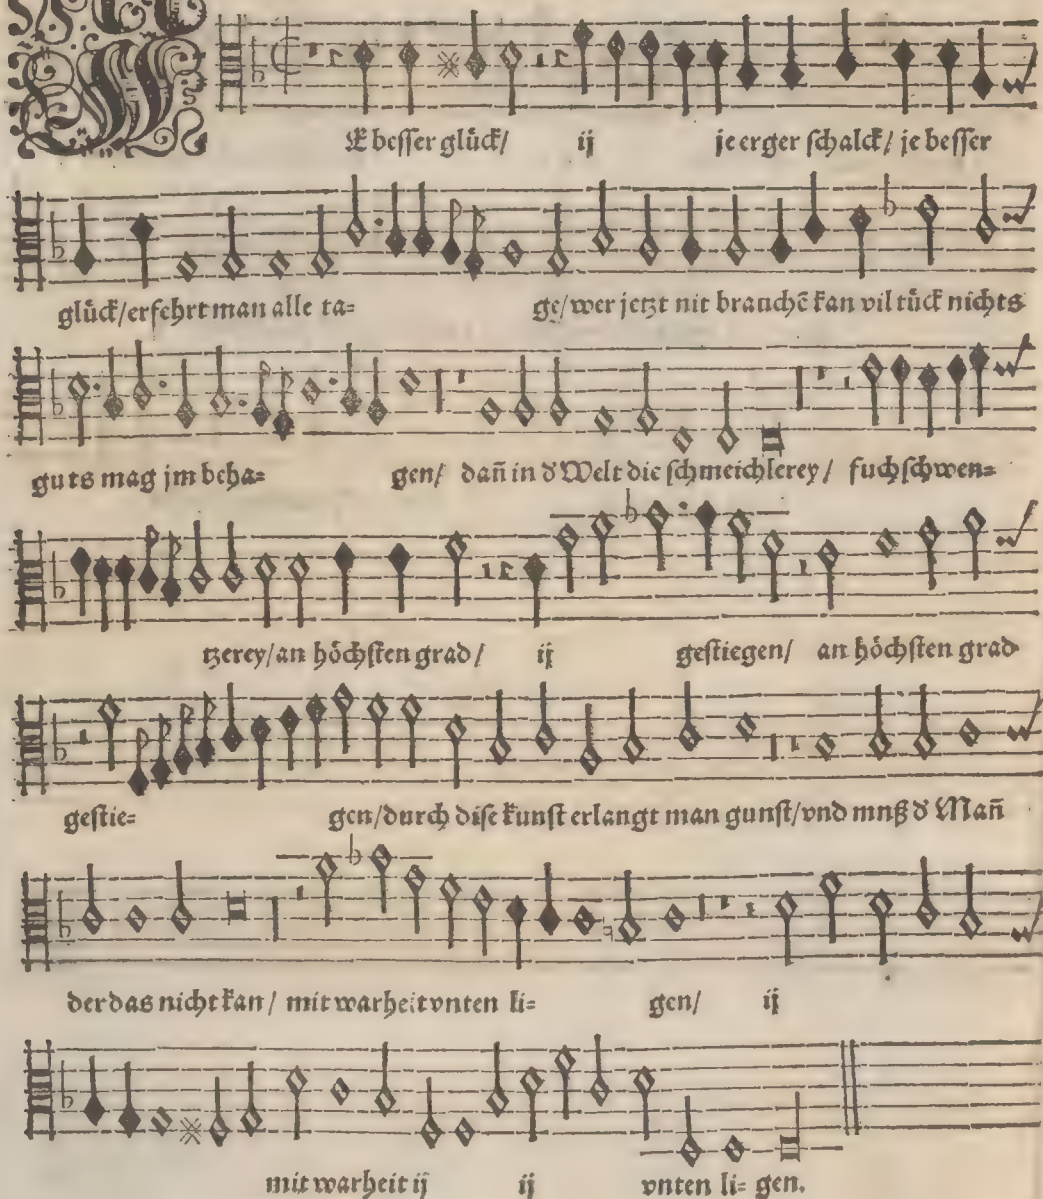 JE besser glück/ ij je erger schalck/ je besser
glück/ erfehrt man alle ta= ge/ wer jetzt nit brauchē kan vil tück nichts
guts mag jm beha= gen/ dañ in d̓ Welt die schmeichlerey/ fuchschwen=
tzerey/ an höchsten grad/ ij gestiegen/ an höchsten grad
gestie= gen/ durch dise kunst erlangt man gunst/ vnd mnß d̓ Mañ
der das nicht kan/ mit warheit vnten li= gen/ ij
mit warheit ij ij vnten li= gen.